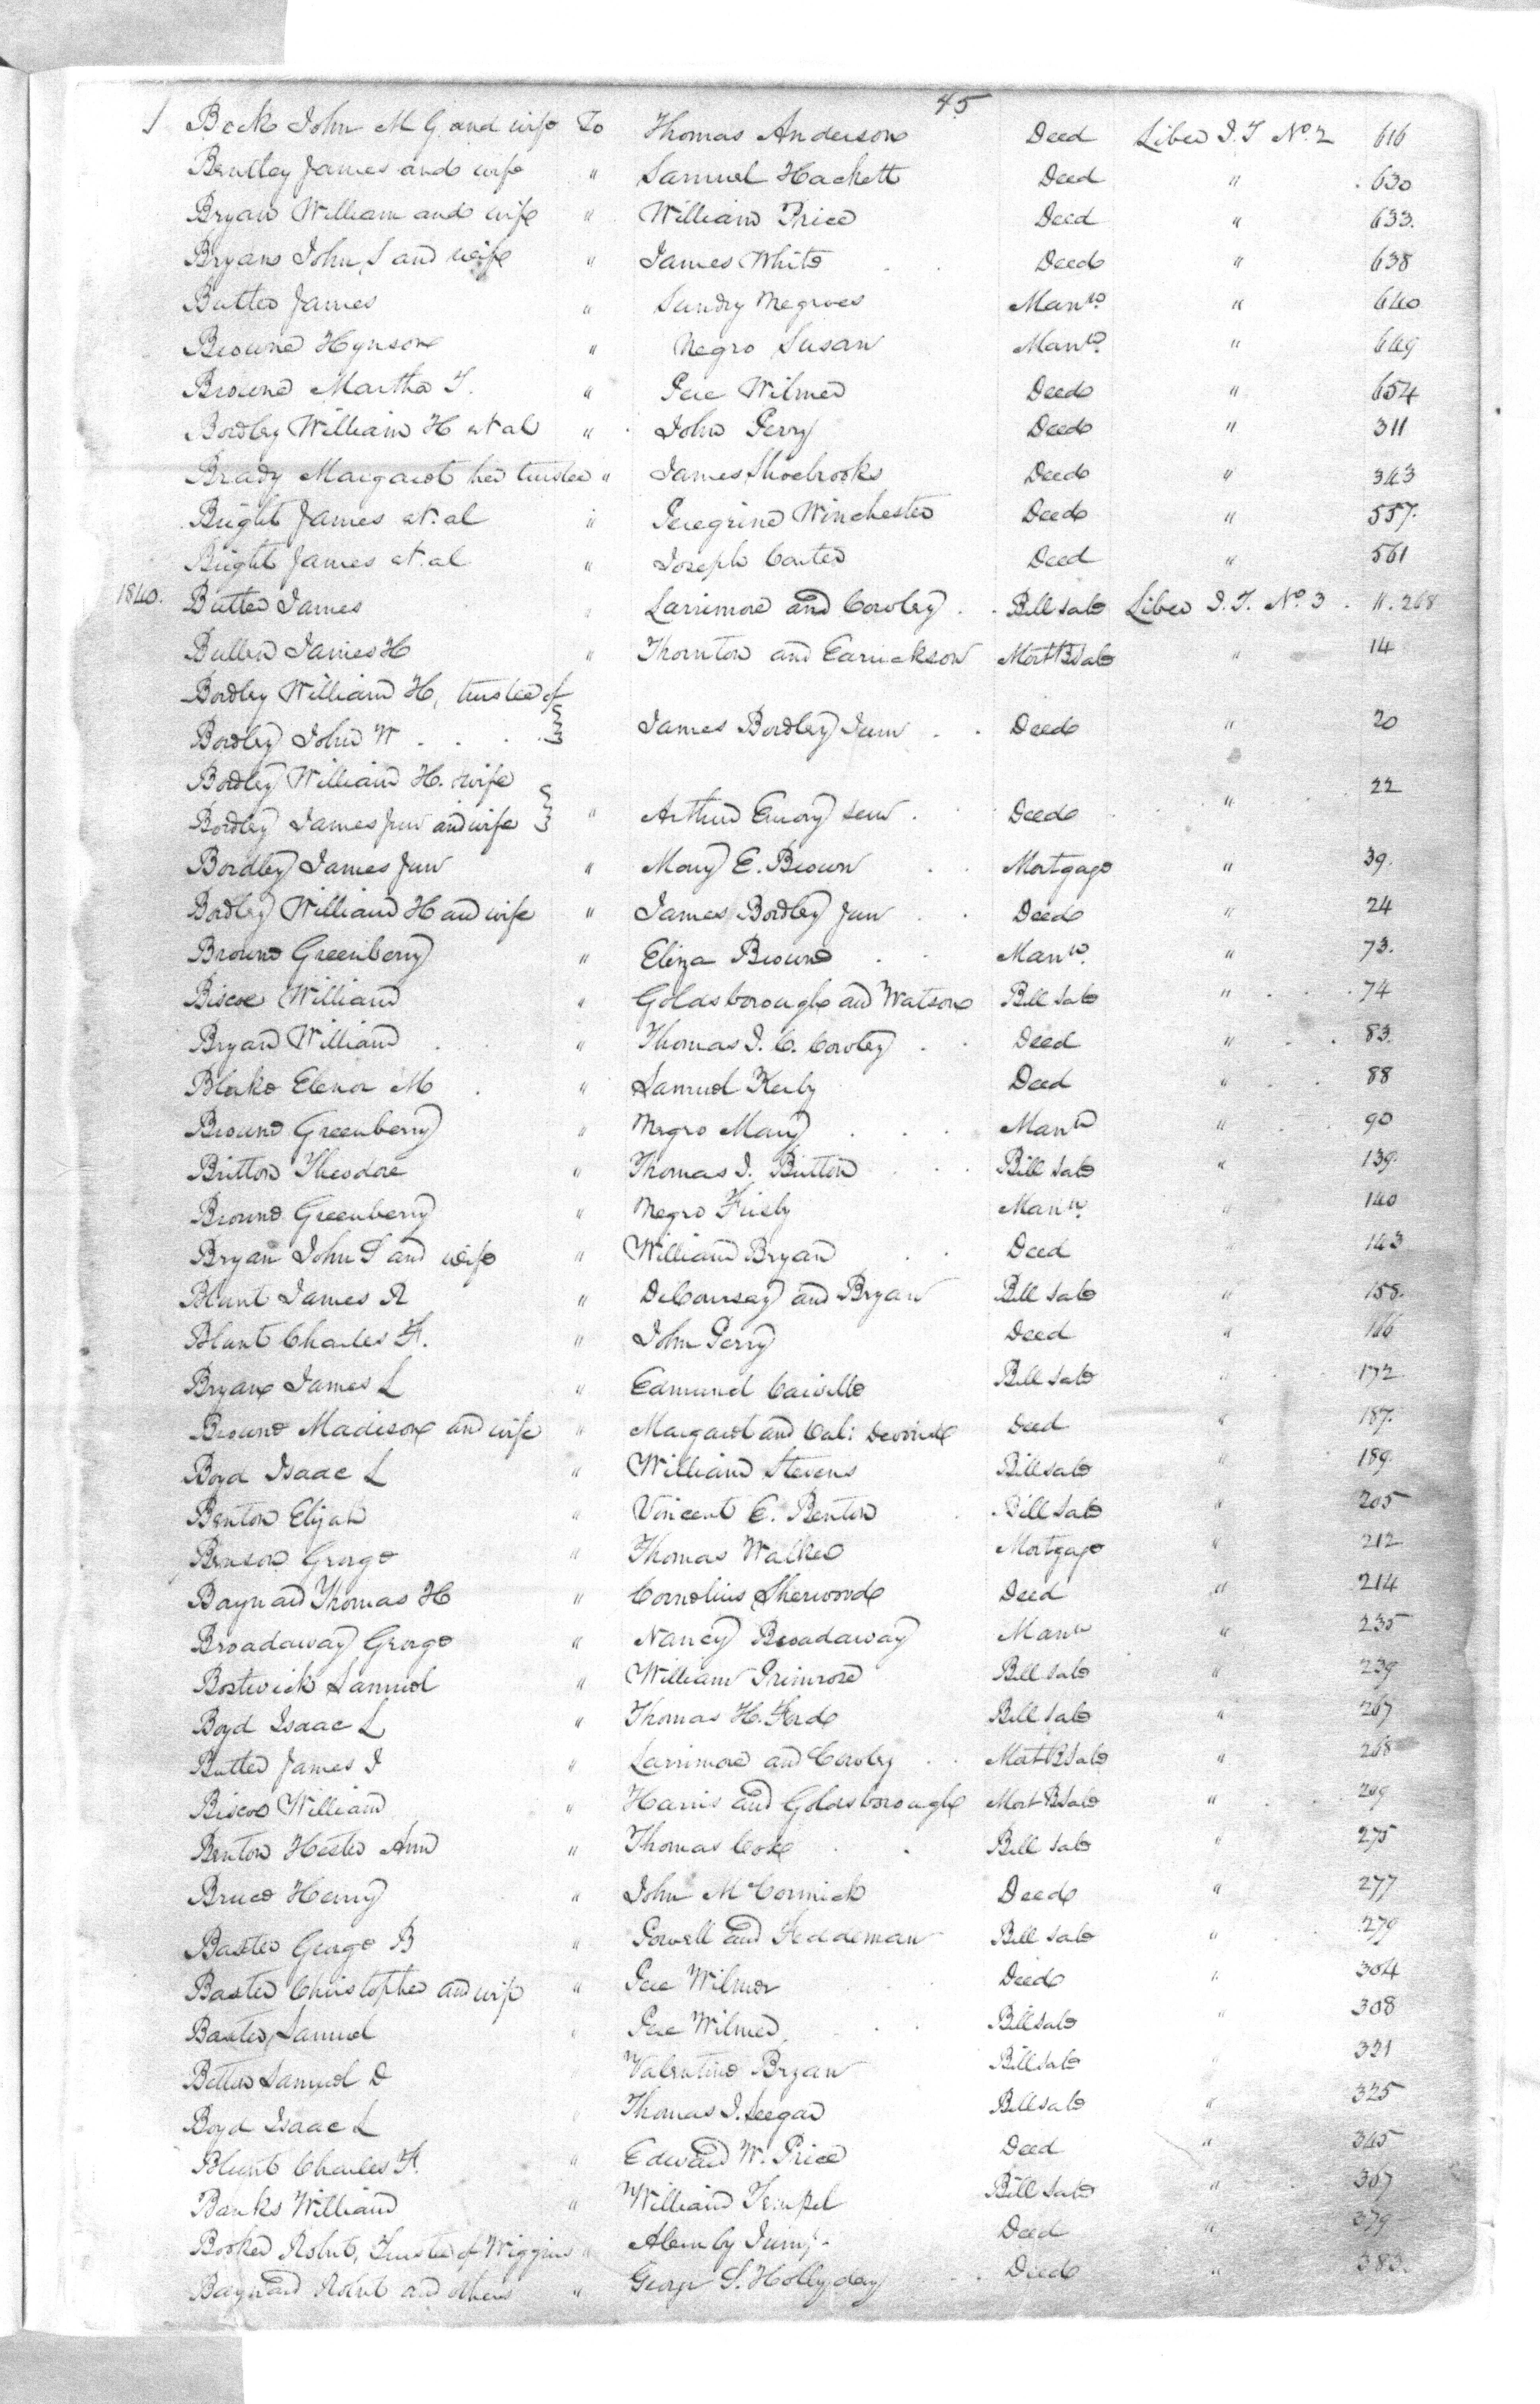 45
Beck John M G and wife To Thomas Anderson Deed Liber J. T No. 2 616
Bentley James and wife " Samuel Hackett Deed " 630
Bryan William and wife " William Price Deed " 633.
Bryan John S and wife " James White Deed " 638
Butler James " Sundry Negroes Man.n 640
Browne Hynson " Negro Susan Man.n " 649
Browne Martha T. " Pere Wilmer Deed " 654
Bordley William H et al " John Perry Deed " 311
Brady Margaret her trustee " James Shoebrooks Deed " 343
Bright James et. al " Peregrine Winchester Deed " 557.
Bright James et. al " Joseph Carter Deed " 561
1840. Butler James " Larrimore and Cowley Bill Sale Liber J. T. No. 3 11. 268
Bullen James H " Thornton and Earickson Mort B Sale " 14
Bordley William H, trustee of
Bordley John W James Bordley Junr Deed " 20
Bordley William H. wife 22
Bordley James Junr and wife " Arthur Emory senr Deed "
Bordley James Junr " Mary E. Brown Mortgage " 39.
Bordley William H and wife " James Bordley Junr Deed " 24
Browne Greenberry " Eliza Browne Man.n " 73.
Biscoe William " Goldsborough and Watson Bill Sale " 74
Bryan William " Thomas J. C. Cowley Deed " 83.
Blake Elenor M " Samuel Kerly Deed " 88
Browne Greenberry " Negro Mary Man.n " 90
Britton Theodore " Thomas J. Britton Bill Sale " 139.
Browne Greenberry " Negro Frisby Man.n " 140
Bryan John S and wife " William Bryan Deed 143
Blunt James R " DeCoursay and Bryan Bill Sale " 158.
Blunt Charles F. " John Perry Deed " 166
Bryan James L " Edmund Carville Bill Sale " 172
Browne Madison and wife " Margaret and Deed " 187.
Boyd Isaac L " William Stevens Bill Sale " 189.
Benton Elijah " Vincent E. Benton Bill Sale " 205
Benson George " Thomas Walker Mortgage " 212
Baynard Thomas H " Cornelius Sherwood Deed " 214
Broadaway George " Nancy Broadaway Man.n " 235
Bostwick Samuel " William Primrose Bill Sale " 239
Boyd Isaac L " Thomas H. Ford Bill Sale " 267
Butler James J " Larrimore and Cowley Mort B Sale " 268
Biscoe William " Harris and Goldsborough Mort B Sale " 269
Benton Hester Ann " Thomas Cox Bill Sale " 275
Bruce Henry " John McCormick Deed " 277
Baxter George B " Powell and Feddeman Bill Sale " 279
Baxter Christopher and wife " Pere Wilmer Deed " 304
Baxter Samuel " Pere Wilmer Bill Sale " 308
Betts Samuel D Valentine Bryan Bill Sale 321
Boyd Isaac L Thomas J. Seegar Bill Sale " 325
Blunt Charles F. " Edward W. Price Deed " 345
Banks William " William Tempel Bill Sale " 367
Booker Robert, Trustee of Wiggins " Alemby Jump Deed " 379
Baynard Robert and others " George S. Hollyday Deed " 383.